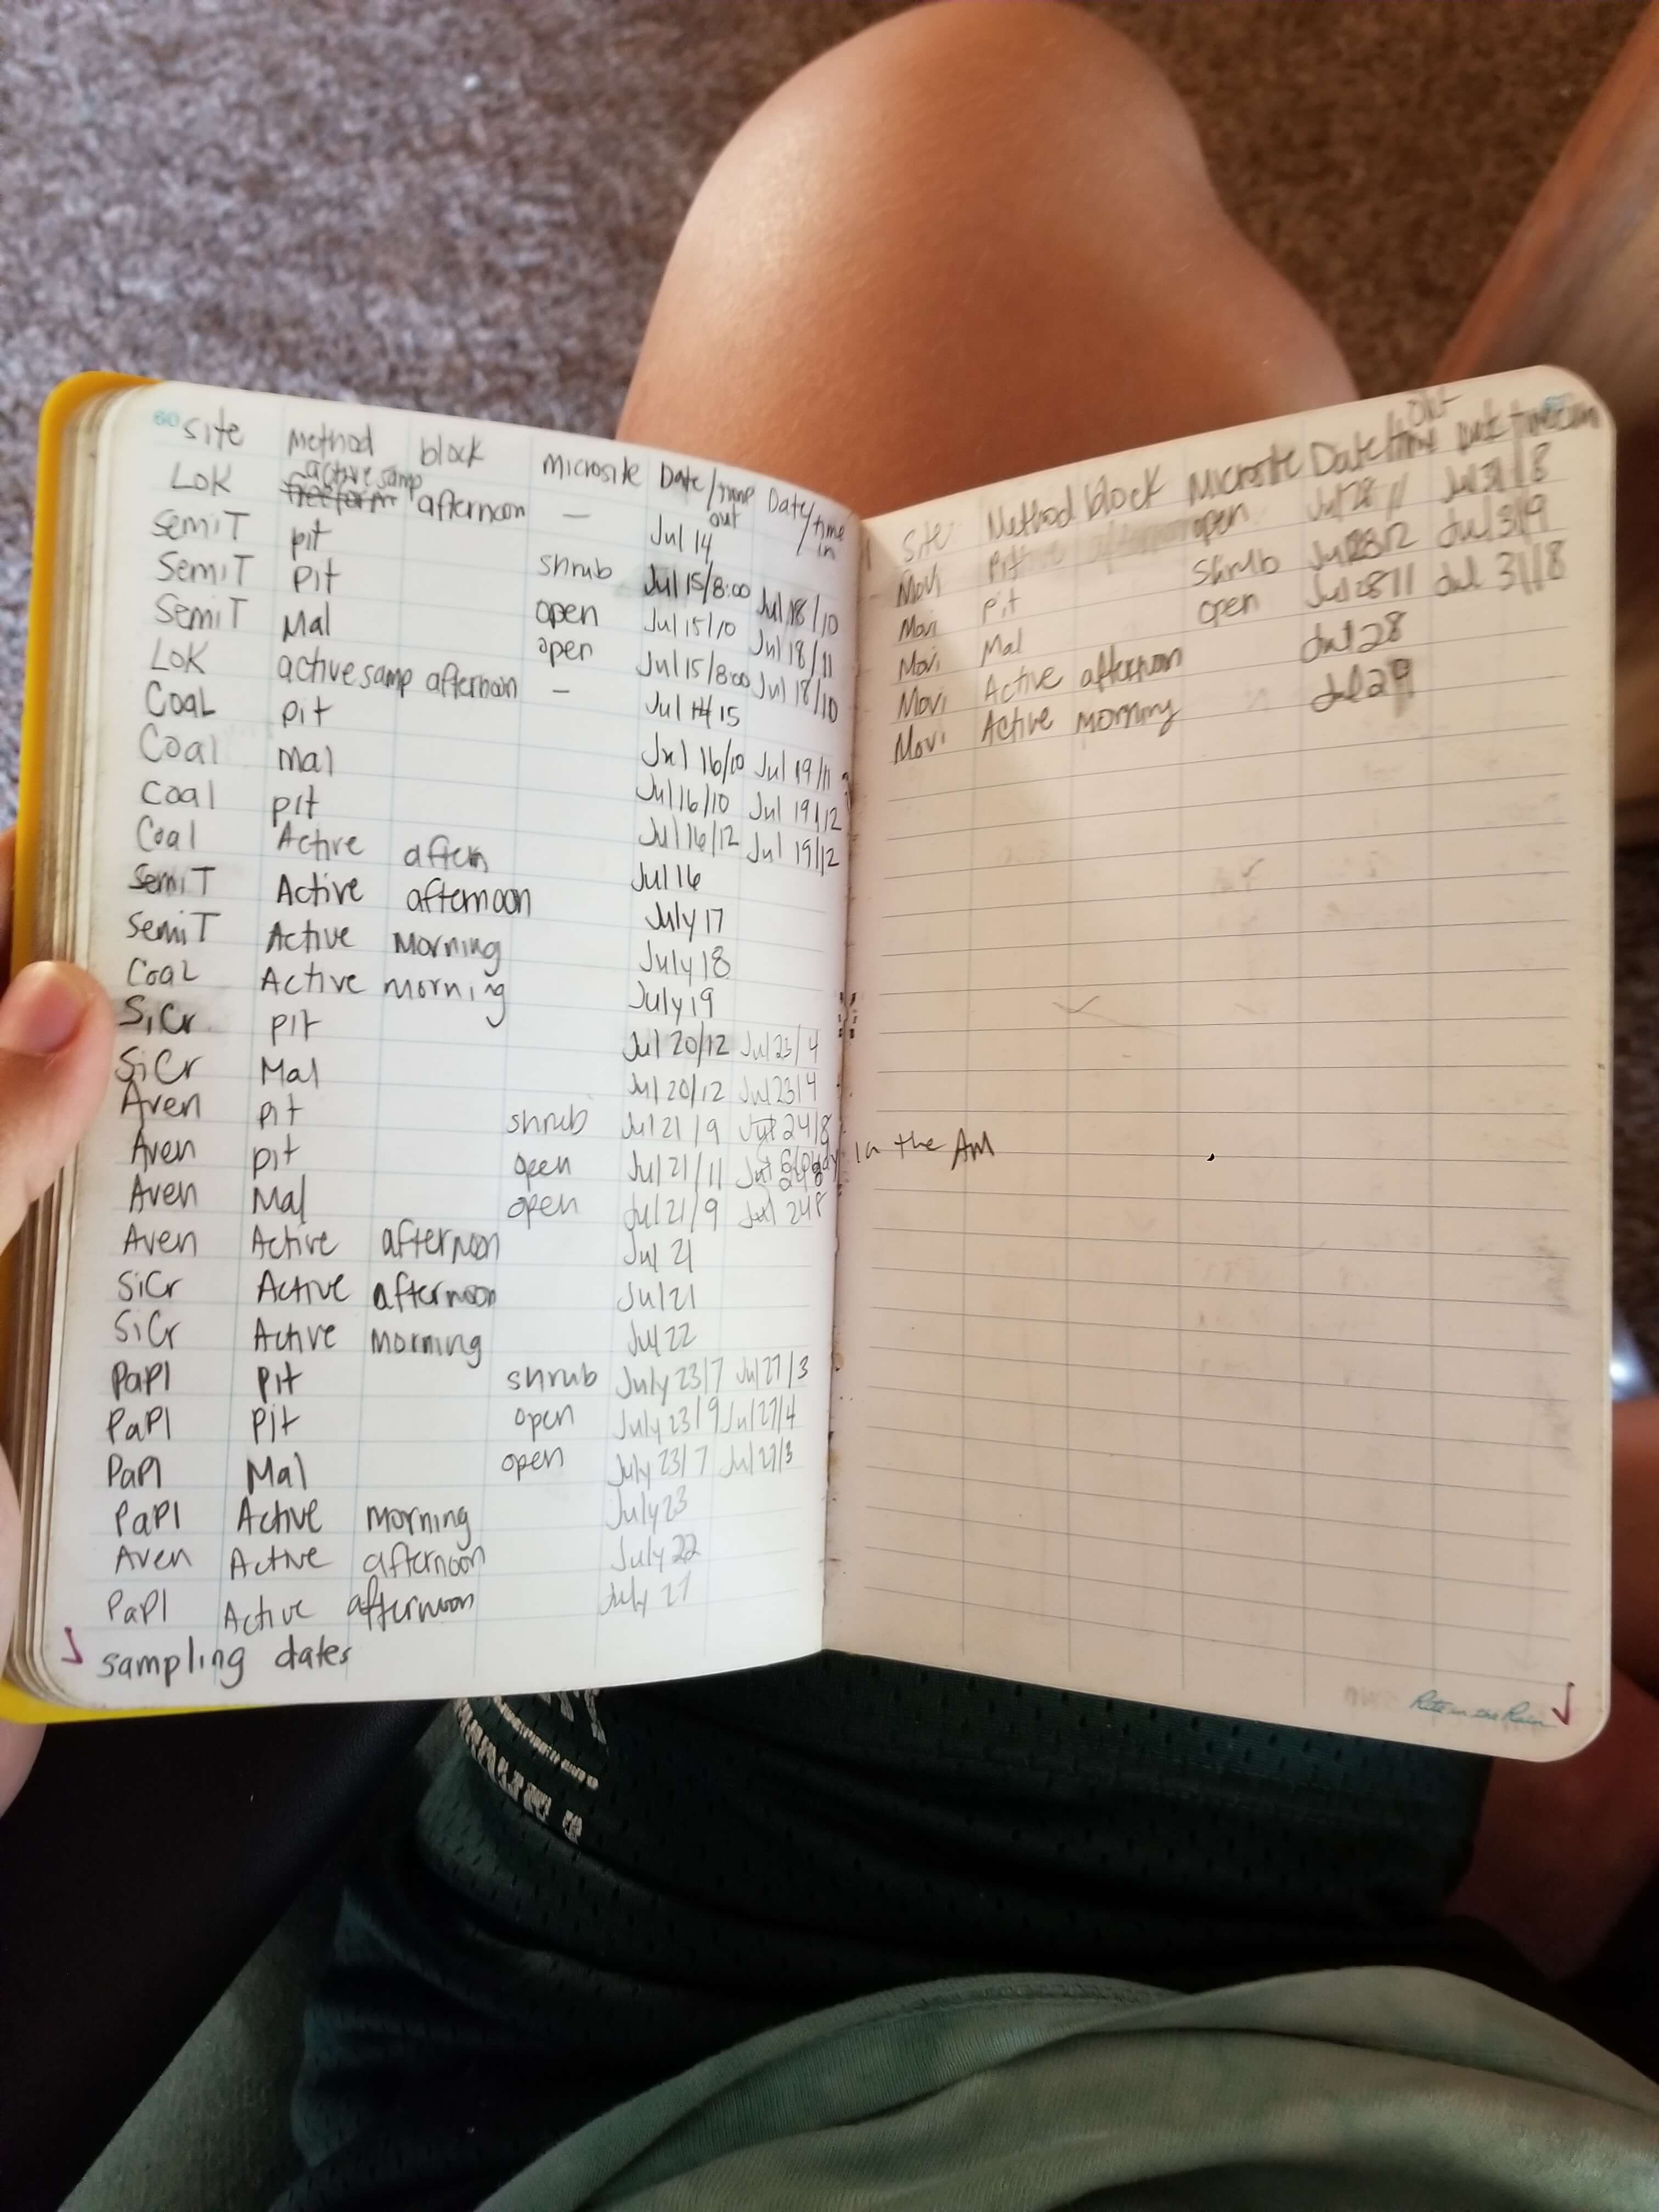 site Method block Microsite Date/time out Date/time in
LoK active samp afternoon — Jul 14
SemiT pit shrub Jul 15/8:00 Jul 18/10
SemiT pit open Jul 15/10 Jul 18/11
SemiT Mal open Jul 15/8:00 Jul 18/10
LoK active samp afternoon — Jul 15
CoaL pit Jul 16/10 Jul 19/11
Coal Mal Jul 16/10 Jul 19/12
Coal pit Jul 16/12 Jul 19/12
Coal Active aftern Jul 16
SemiT Active afternoon July 17
SemiT Active Morning July 18
CoaL Active morning July 19
SiCr pit Jul 20/12 Jul 23/4
SiCr Mal Jul 20/12 Jul 23/4
Aven pit shrub Jul 21/9 Jul 24/8
Aven pit open Jul 21/11 Jul in the AM
Aven Mal open Jul 21/9 Jul 24 8
Aven Active afternoon Jul 21
SiCr Active afternoon Jul 21
SiCr Active Morning Jul 22
PaPl Pit shrub July 23/7 Jul 27/3
PaPl Pit open July 23/9 Jul 27/4
PaPl Mal open July 23/7 Jul 27/3
PaPl Active Morning July 23
Aven Active afternoon July 22
PaPl Active afternoon July 27
sampling dates
Site Method block Microsite Date/time out
Movi Pit open Jul 28 11 Jul 31/8
Movi pit shrub Jul 28 12 Jul 31/9
Movi Mal open Jul 28 11 Jul 31/8
Movi Active afternoon Jul 28
Movi Active Morning Jul 29
Rite in the Rain